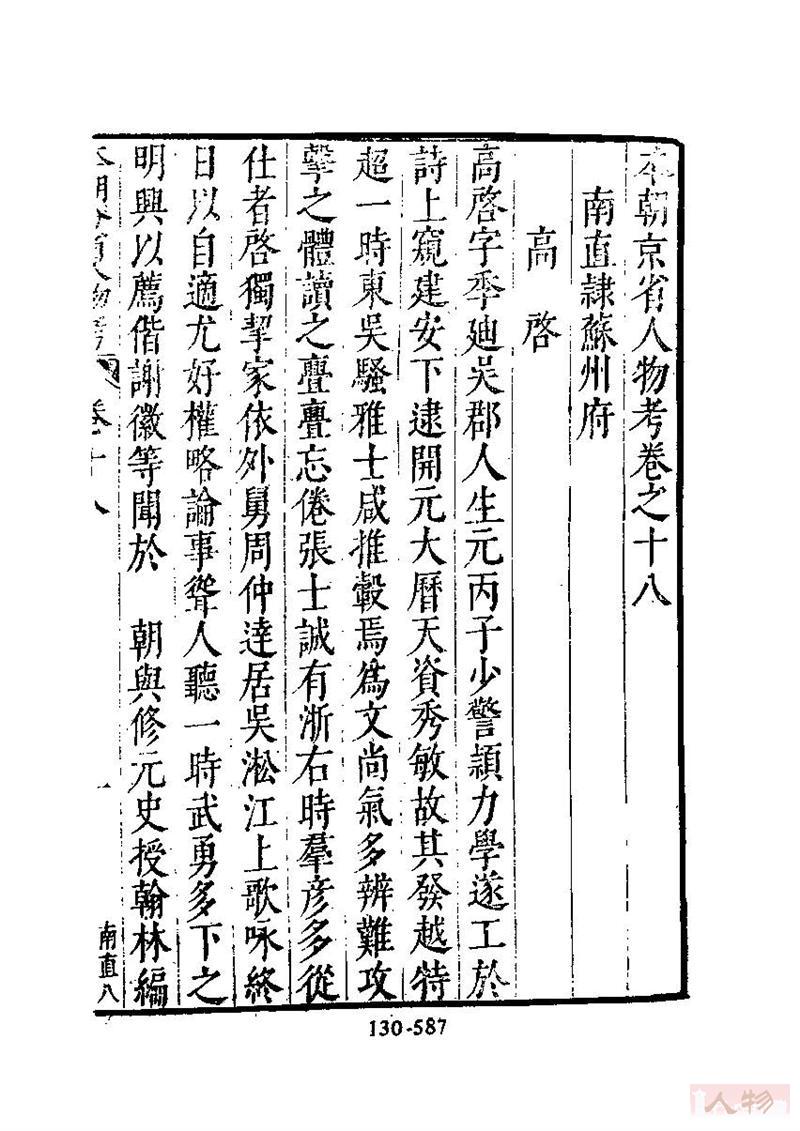 本朝京省人物考卷之十八
南直隷蘇州府
高啓
高啓字季廸吳郡人生元丙子少警頴力學遂工於
詩上窺建安下逮開元大曆天資秀敏故其發越特
超一時東吳騷雅士咸推轂焉爲文尚氣多辨難攻
擊之體讀之亹亹忘倦張士誠有浙右時羣彦多從
仕者啓獨挈家依外舅周仲逹居吳淞江上歌咏終
日以自適尤好權略論事聳人聽一時武勇多下之
明興以薦偕謝徽等聞於　朝與修元史授翰林編
本朝京省人物考 卷十八 一 南直八
130-587
人物